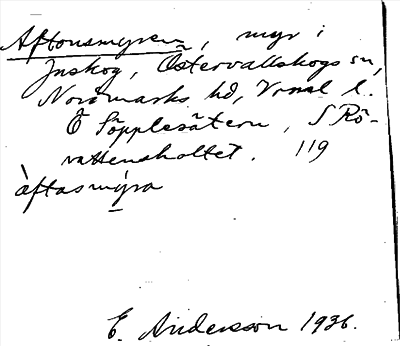 Aftonsmyren, myr i
Inskog, Östervallskogs sn,
Nordmarks hd, Vrml l.
Ö Söpplesätern, S Rö-
vattensholtet. 119
àftasmýra
E. Andersson 1936.